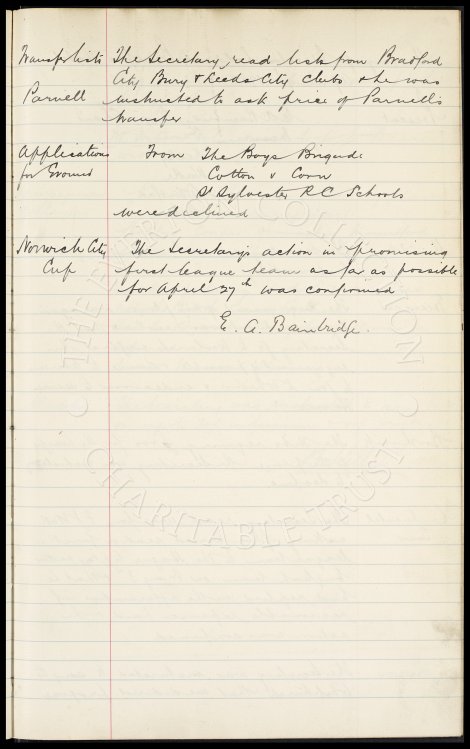 Transfer lists The Secretary read lists from Bradford
City Bury & Leeds City Clubs & he was
Parnell instructed to ask price of Parnell's
transfer
Applications From The Boys Brigade
for Ground Cotton v Corn
St Sylvester R C Schools
were declined
Norwich City The Secretary's action in promising
Cup first league team as far as possible
for April 27th was confirmed
E. A. Bainbridge.
THE EVERTON COLLECTION
CHARITABLE TRUST